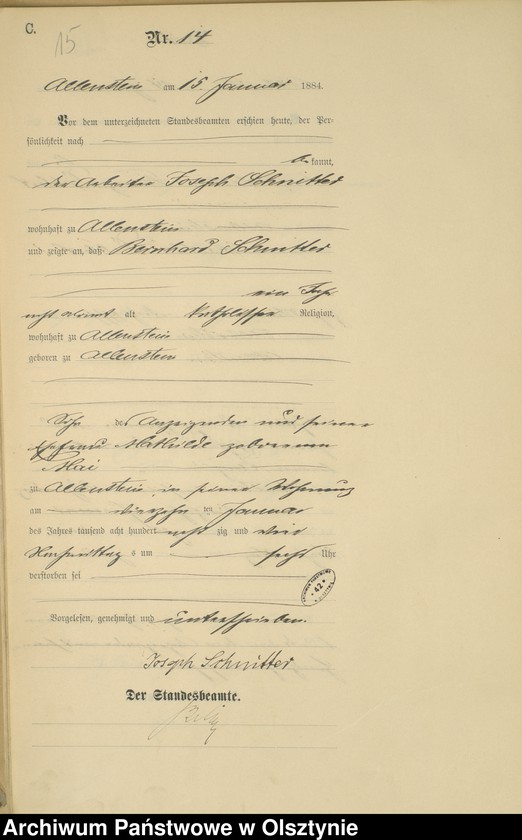 C.
15
Nr. 14
Allenstein am 15. Januar 1884.
Vor dem unterzeichneten Standesbeamten erschien heute, der Per-
sönlichkeit nach
bekannt,
der Arbeiter Joseph Schnitter
wohnhaft zu Allenstein
und zeigte an, daß Bernhard Schnitter
ein Jahr
nicht alt katholischer Religion,
wohnhaft zu Allenstein
geboren zu Allenstein
Sohn des Anzeigenden und seiner
Ehefrau Mathilde geborenen
Mai
zu Allenstein, in seiner Wohnung
am vierzehn ten Januar
des Jahres tausend acht hundert acht zig und vier
Nachmittag s um sechs Uhr
verstorben sei
42
Vorgelesen, genehmigt und unterschrieben.
Joseph Schnitter
Der Standesbeamte.
Archiwum Państwowe w Olsztynie